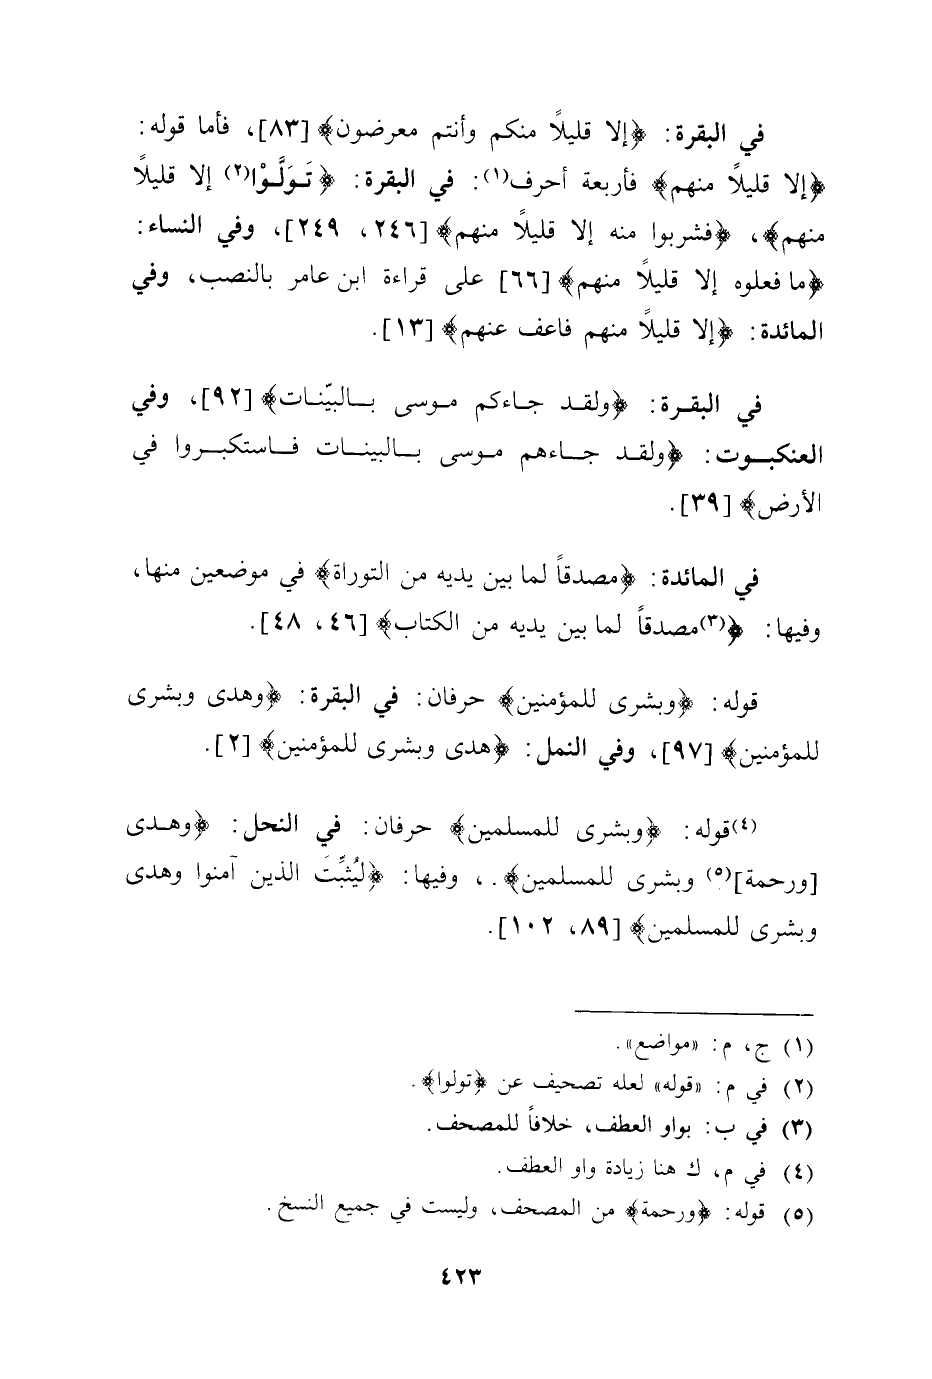 في البقرة: ﴿إلا قليلاً منكم وأنتم معرضون﴾ [٨٣]، فأما قوله:
﴿إلا قليلاً منهم﴾ فأربعة أحرف(١): في البقرة: ﴿تَوَلَّوْا(٢) إلا قليلاً
منهم﴾، ﴿فشربوا منه إلا قليلاً منهم﴾ [٢٤٦، ٢٤٩]، وفي النساء:
﴿ما فعلوه إلا قليلاً منهم﴾ [٦٦] على قراءة ابن عامر بالنصب، وفي
المائدة: ﴿إلا قليلاً منهم فاعف عنهم﴾ [١٣].
في البقرة: ﴿ولقد جاءكم موسى بالبيّنات﴾ [٩٢]، وفي
العنكبوت: ﴿ولقد جاءهم موسى بالبينات فاستكبروا في
الأرض﴾ [٣٩].
في المائدة: ﴿مصدقاً لما بين يديه من التوراة﴾ في موضعين منها،
وفيها: ﴿(٣)مصدقاً لما بين يديه من الكتاب﴾ [٤٦، ٤٨].
قوله: ﴿وبشرى للمؤمنين﴾ حرفان: في البقرة: ﴿وهدى وبشرى
للمؤمنين﴾ [٩٧]، وفي النمل: ﴿هدى وبشرى للمؤمنين﴾ [٢].
(٤)قوله: ﴿وبشرى للمسلمين﴾ حرفان: في النحل: ﴿وهدى
[ورحمة](٥) وبشرى للمسلمين﴾.، وفيها: ﴿ليُثبِّتَ الذين آمنوا وهدى
وبشرى للمسلمين﴾ [٨٩، ١٠٢].
(١) ج، م: «مواضع».
(٢) في م: «قوله» لعله تصحيف عن ﴿تولوا﴾.
(٣) في ب: بواو العطف، خلافاً للمصحف.
(٤) في م، ك هنا زيادة واو العطف.
(٥) قوله: ﴿ورحمة﴾ من المصحف، وليست في جميع النسخ.
٤٢٣